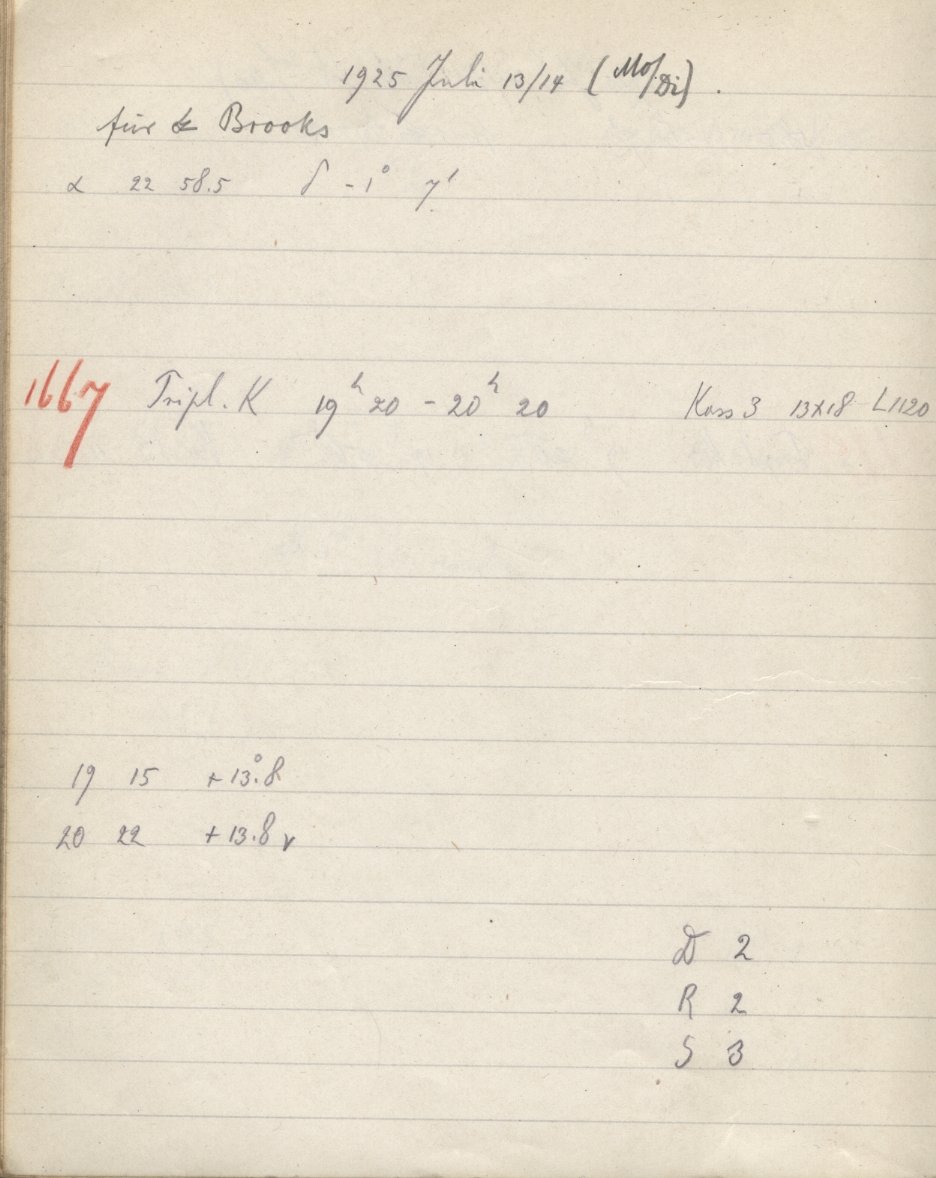 1925 Juli 13/14 (Mo/Di).
für Brooks
α 22 58.5 δ -1° 7'
1667 Tripl. K 19ʰ 20 - 20ʰ 20 Kass 3 13x18 L1120
19 15 +13°.8
20 22 +13.8 v
D 2
R 2
S 3